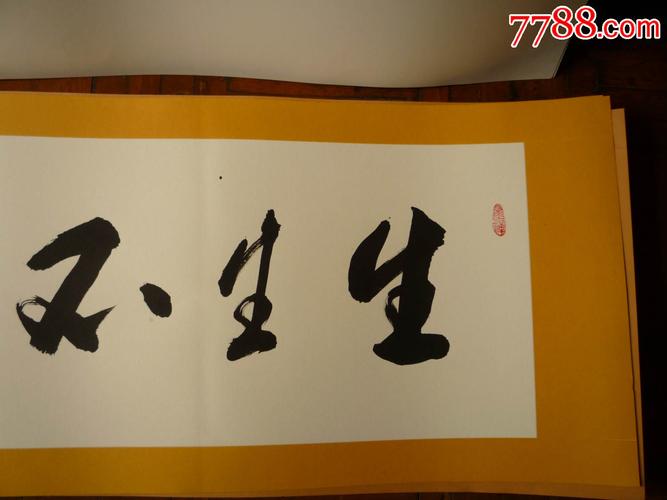 7788.com
生生不